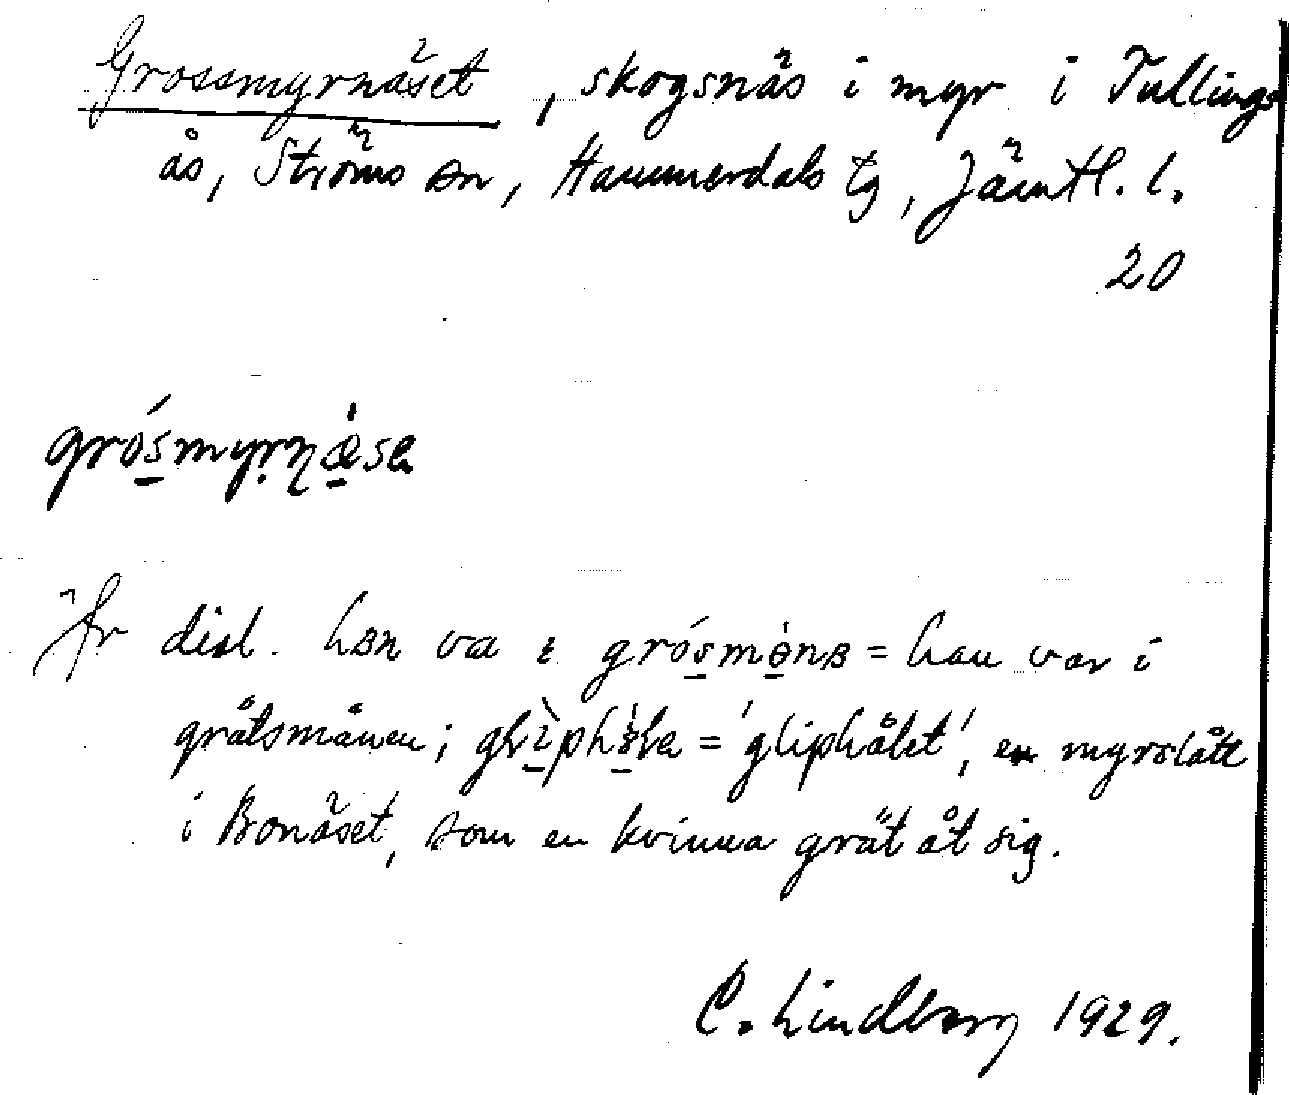 Grossmyrnäset, skogsnäs i myr i Tullings
ås, Ströms sn, Hammerdals tg, Jämtl. l.
20
grósmyrnæse
Jfr dial. han va i grósmònɐ = han var i
gråtsmånen; gliphåla = 'gliphålet', en myrslått
i Bonäset, som en kvinna grät åt sig.
C. Lindberg 1929.